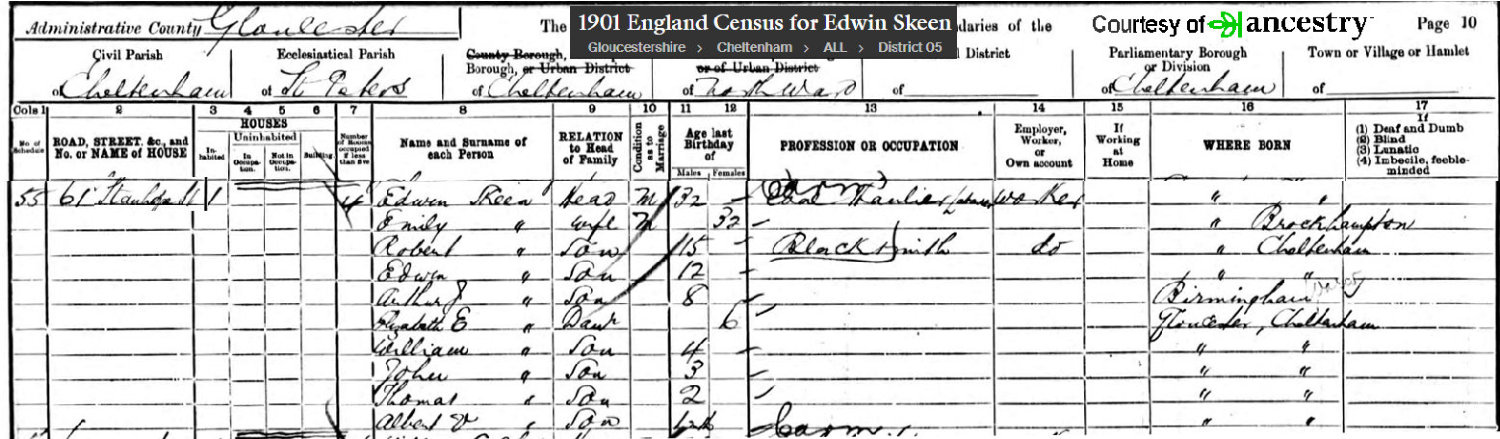 Administrative County Gloucester The 1901 England Census for Edwin Skeen ndaries of the Courtesy of ancestry Page 10
Gloucestershire > Cheltenham > ALL > District 05
Civil Parish Ecclesiastical Parish County Borough, Borough, or Urban District or of Urban District l District Parliamentary Borough or Division Town or Village or Hamlet
of Cheltenham of St Peters of Cheltenham of North Ward of of Cheltenham of
Cols 1 2 3 4 5 6 7 8 9 10 11 12 13 14 15 16 17
No. of Schedule ROAD, STREET, &c., and No. or NAME of HOUSE HOUSES Inhabited Uninhabited In Occupation. Not in Occupation. Building. Number of Rooms occupied if less than five Name and Surname of each Person RELATION to Head of Family Condition as to Marriage Age last Birthday of Males Females PROFESSION OR OCCUPATION Employer, Worker, or Own account If Working at Home WHERE BORN If (1) Deaf and Dumb (2) Blind (3) Lunatic (4) Imbecile, feeble-minded
55 61 Stanhope St 1 4 Edwin Skeen Head M 32 Coal Haulier Labourer Worker " "
Emily " Wife M 32 " Brockhampton
Robert " Son 15 Blacksmith do " Cheltenham
Edwin " Son 12 " "
Arthur J " Son 8 Birmingham
Elizabeth E " Daur 6 Gloucester, Cheltenham
William " Son 4 " "
John " Son 3 " "
Thomas " Son 2 " "
Albert V " Son " "